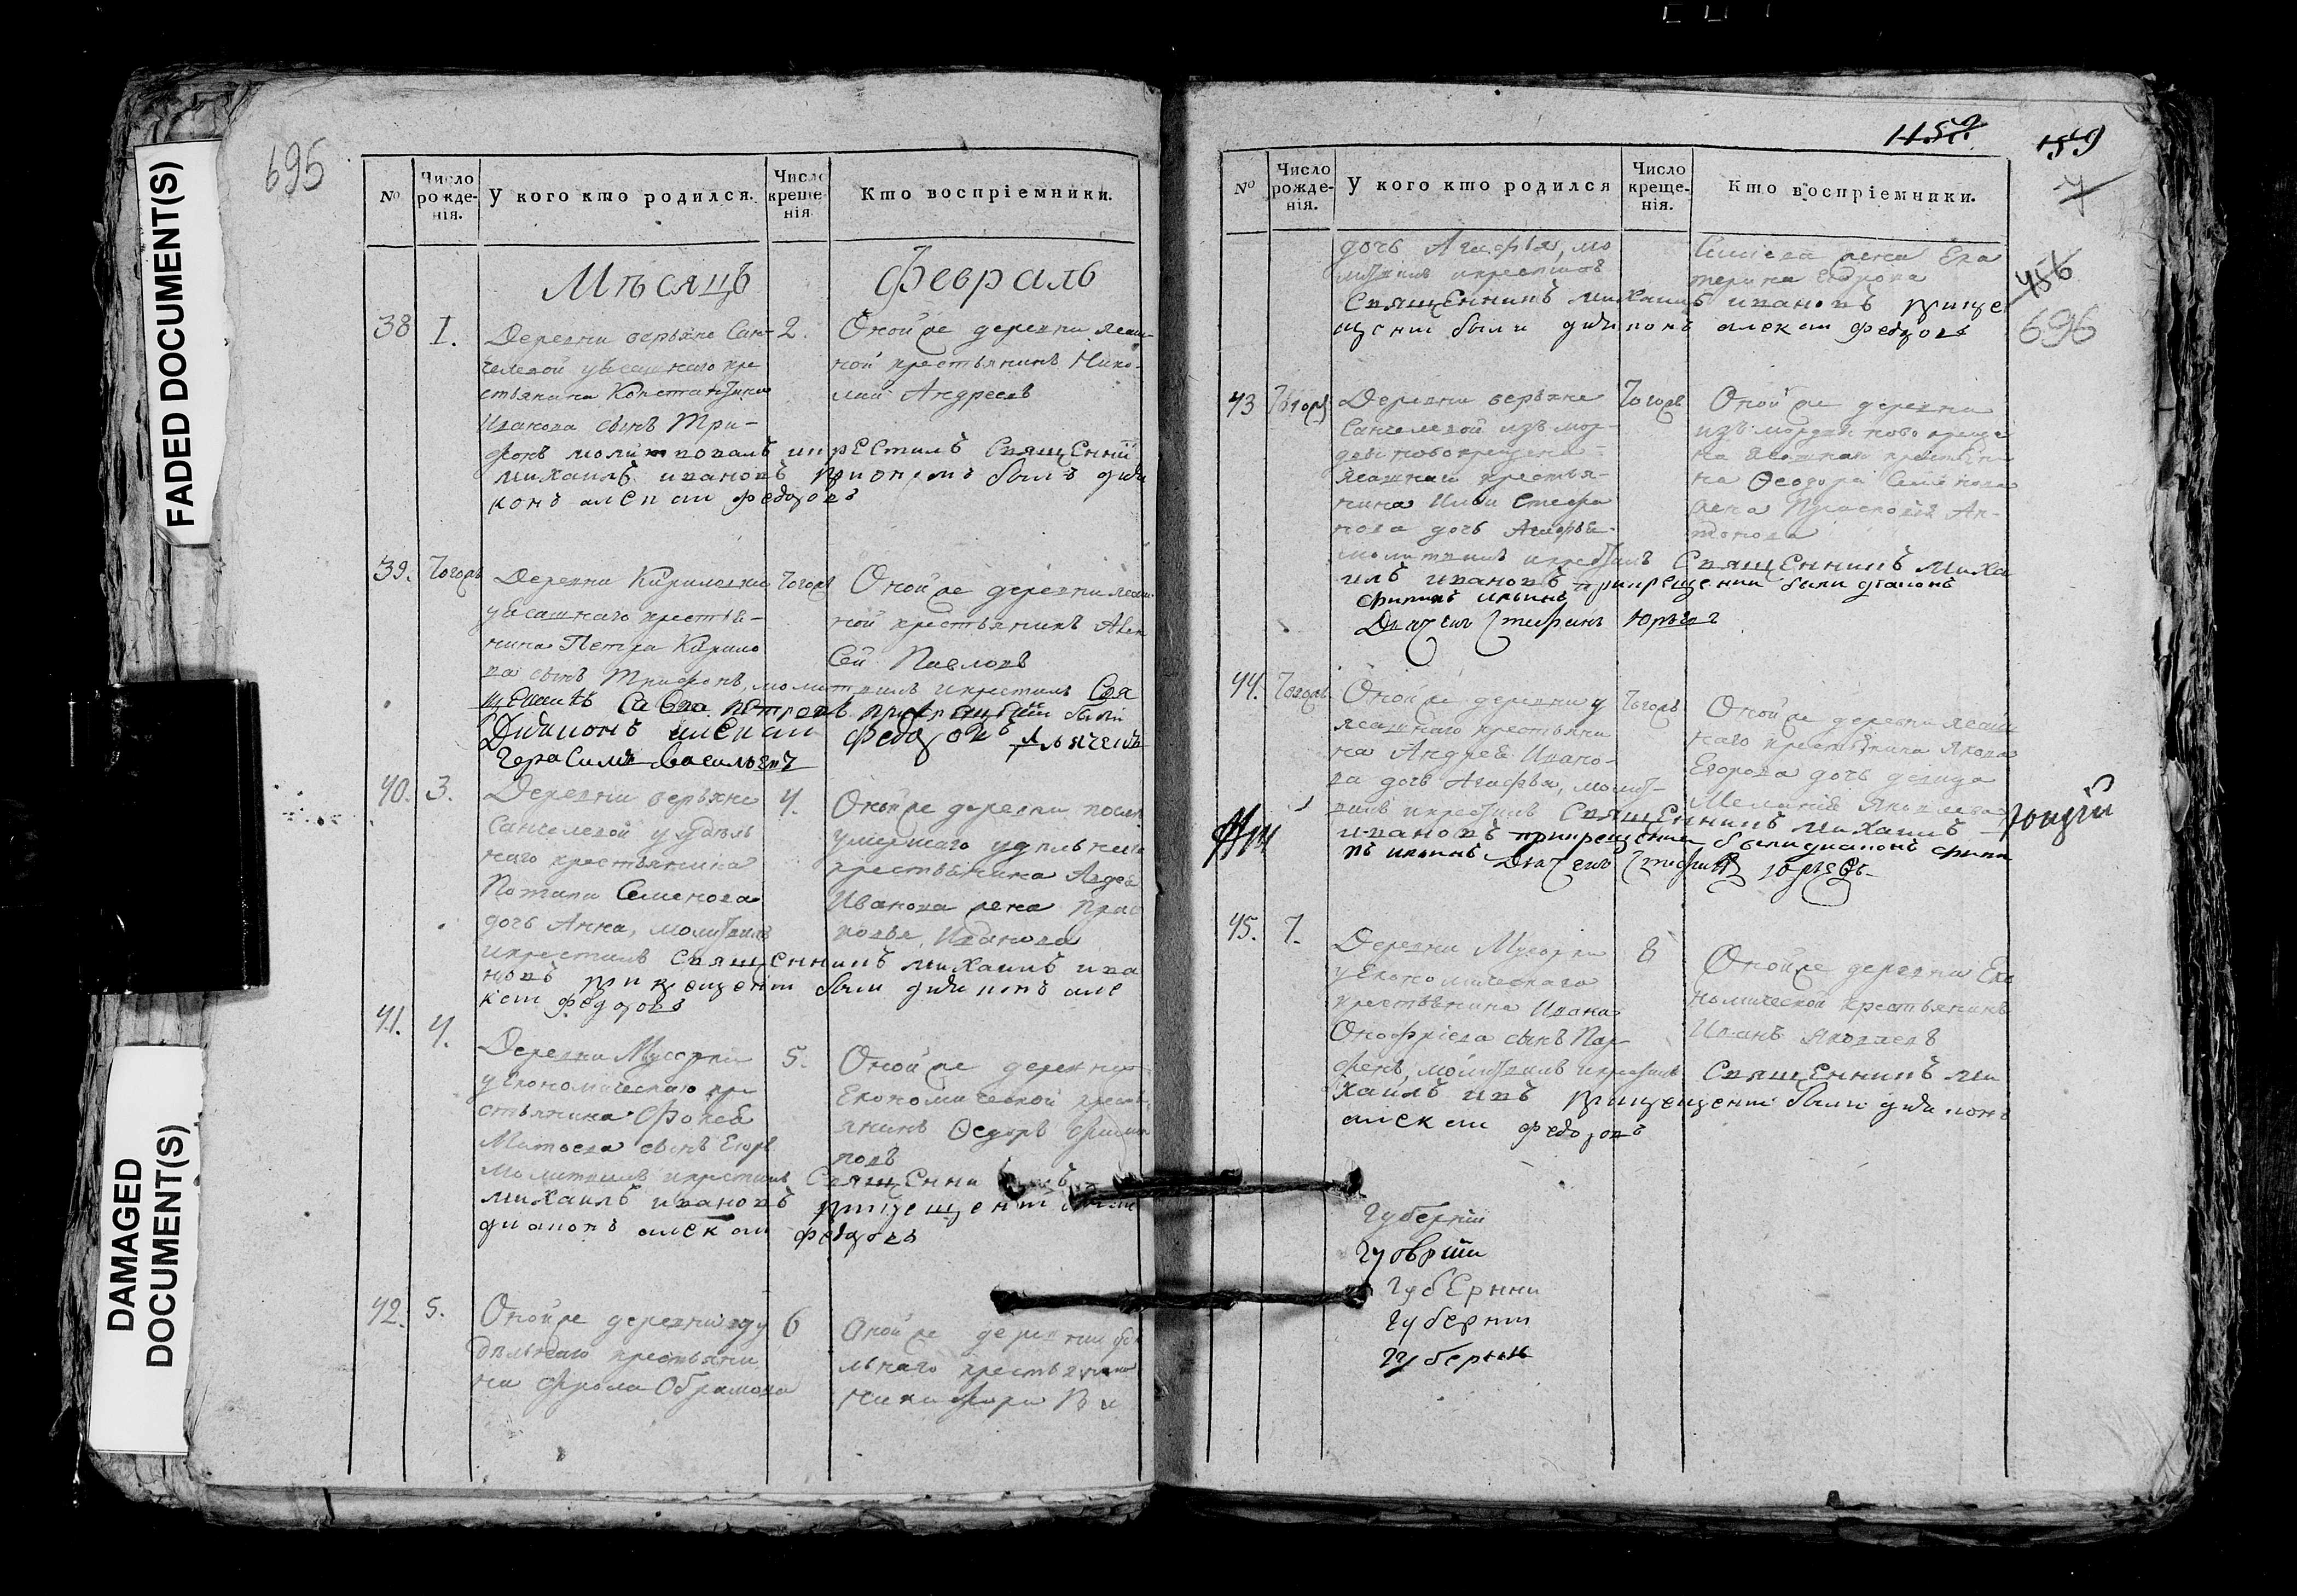 FADED DOCUMENT(S)
DAMAGED DOCUMENT(S)
695
№
Число рожде-нія.
У кого кто родился.
Число креще-нія.
Кто воспріемники.
Мѣсяцъ
Февраль
38
1.
Деревни верхне Сан-
челевой уясашнаго кре
стьянина Константина
Иванова сынъ Три-
фонъ молитвовалъ икрестилъ Священни
михаилъ ивановъ
былъ диа
конъ алексаи федоровъ
2.
Оной же деревни ясаш-
ной крестьянинъ Нико-
лай Андреевъ
39.
Тогожъ
Деревни Кириловки
уясашнаго крестья-
нина Петра Кирило
ва сынъ Трифонъ, молитвилъ икрестилъ Свя
щенникъ Савва Петровъ прикрещении были
Диаконъ алексаи федоровъ дьячекъ
Герасимъ Васильевъ
Тогожъ
Оной же деревни ясаш-
ной крестьянинъ Алек
сей Павловъ
40.
3.
Деревни верхне
Санчелевой уудѣль
наго крестьянина
Потапа Семенова
дочь Анна, молитвилъ
икрестилъ Священникъ михаилъ ива
новъ прикрещении были диаконъ але
ксаи федоровъ
4.
Оной же деревни посли
умершаго удѣльнаго
крестьянина Авдея
Иванова жена Прас
ковья Иванова
41.
4.
Деревни Мусорки
уекономическаго кре
стьянина Фокея
Матвева сынъ Егоръ
молитвилъ икрестилъ Священникъ
михаилъ ивановъ прикрещении были
диаконъ алексаи федоровъ
5.
Оной же деревни
Економической кресть-
янинъ Федоръ
42.
5.
Оной же деревни уу
дѣльнаго крестьяни
на Фрола Обрамова
6
Оной же деревни удѣ
льнаго крестьянина
Никифора
1152.
159
7
456
696
№
Число рожде-нія.
У кого кто родился
Число креще-нія.
Кто воспріемники.
дочь Агафья, мо
литвилъ икрестилъ
Священникъ михаилъ ивановъ прикре
щении были диаконъ алексаи федоровъ
жена Ека
терина Егорова
43
Тогожъ
Деревни верхне
Санчелевой изъ мор-
двы новокрещена-
ясашнаго крестья-
нина Ильи Стефа
нова дочь Агафья-
молитвилъ икрестилъ Священникъ миха
илъ ивановъ прикрещении были диаконъ
филипъ ильинъ
Дьячекъ Стефанъ Юрьевъ
Тогожъ
Оной же деревни
изъ мордвы новокреще
на ясашнаго крестьяни
на Феодора Семенова
жена Прасковья Ан-
тонова
44.
Тогожъ
Оной же деревни у
ясашнаго крестьяни
на Андрея Ивано-
ва дочь Агафья, молит-
вилъ икрестилъ Священникъ михаилъ
ивановъ прикрещении были диаконъ фили
пъ ильинъ Дьячекъ Стефанъ Юрьевъ
Тогожъ
Оной же деревни ясаш
наго крестьянина Якова
Егорова дочь девица
Меланья Яковлева
45.
7.
Деревни Мусорки
уекономическаго
крестьянина Ивана
Онофріева сынъ Пар-
фенъ, молитвилъ икрестилъ Священникъ ми
хаилъ ивъ прикрещении были диаконъ
алексаи федоровъ
8
Оной же деревни Еко
номической крестьянинъ
Иванъ Яковлевъ
Губерніи
Губерніи
Губернии
Губерніи
Губерніи